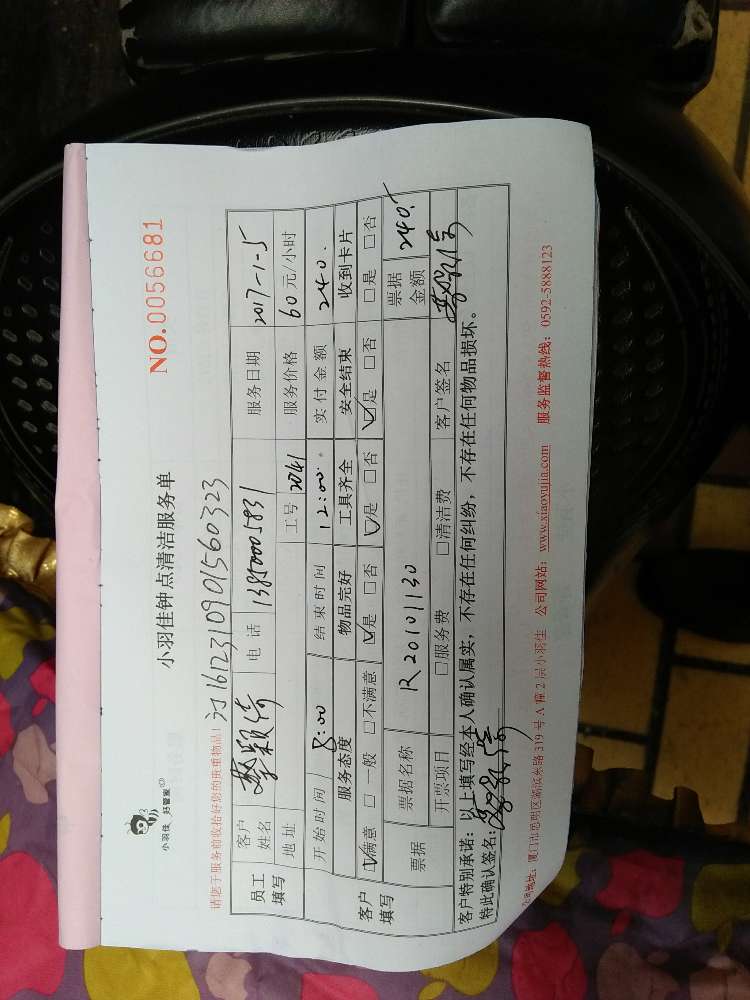 小羽佳 好管家
小羽佳钟点清洁服务单
NO.0056681
请您于服务前收拾好您的贵重物品!
订1612310901560323
员工填写 客户姓名 电话 13850005831 服务日期 2017-1-5
地址 工号 2041 服务价格 60元/小时
开始时间 8:00 结束时间 12:00 实付金额 240.
客户填写 服务态度 物品完好 工具齐全 安全结束 收到卡片
☑满意 □一般 □不满意 ☑是 □否 ☑是 □否 ☑是 □否 □是 □否
票据 票据名称 R20101130 票据金额 240.
开票项目 □服务费 □清洁费 客户签名
客户特别承诺:以上填写经本人确认属实,不存在任何纠纷,不存在任何物品损坏。
特此确认签名:
319号A幢2层小羽佳 公司网站:www.xiaoyujia.com 服务监督热线:0592-5888123